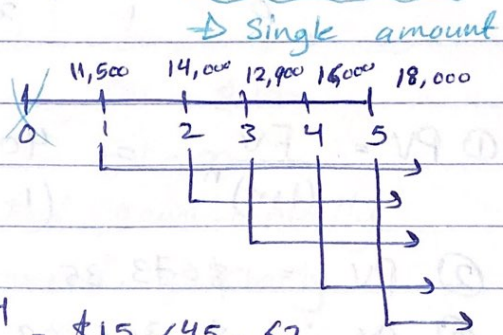 → Single amount
11,500 14,000 12,900 16,000 18,000
0 1 2 3 4 5